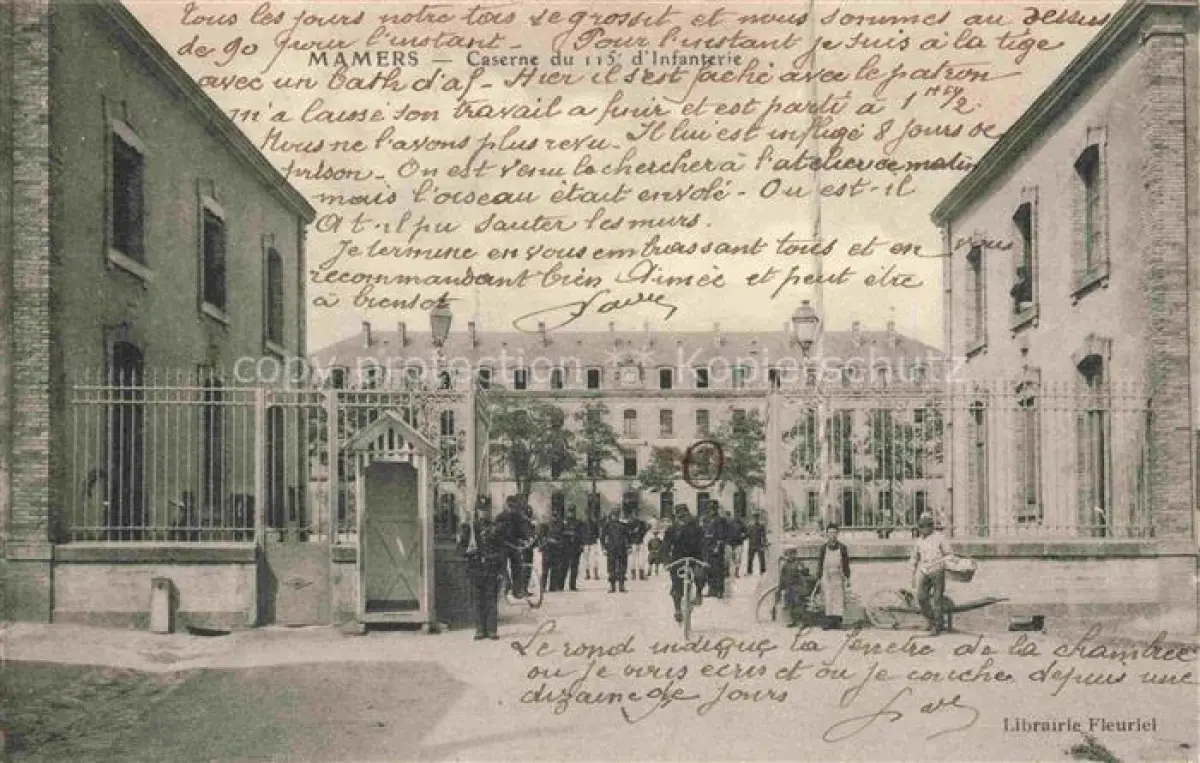 tous les jours notre tas se grossit et nous sommes au dessus
de 90 pour l'instant - Pour l'instant je suis à la tige
MAMERS — Caserne du 115e d'Infanterie
avec un bath d'af - Hier il s'est faché avec le patron
m'a laissé son travail a fuir et est parti à 1 1/2
Nous ne l'avons plus revu. Il lui est infligé 8 jours de
prison - On est venu le chercher à l'atelier ce matin
mais l'oiseau était envolé - Ou est-il
A t-il pu sauter les murs.
Je termine en vous embrassant tous et en vous
recommandant bien Aimée et peut être
à bientot
copy protection ** Kopierschutz
Le rond indique la fenetre de la chambre
ou je vous ecris et ou je couche depuis une
dizaine de jours
Librairie Fleuriel